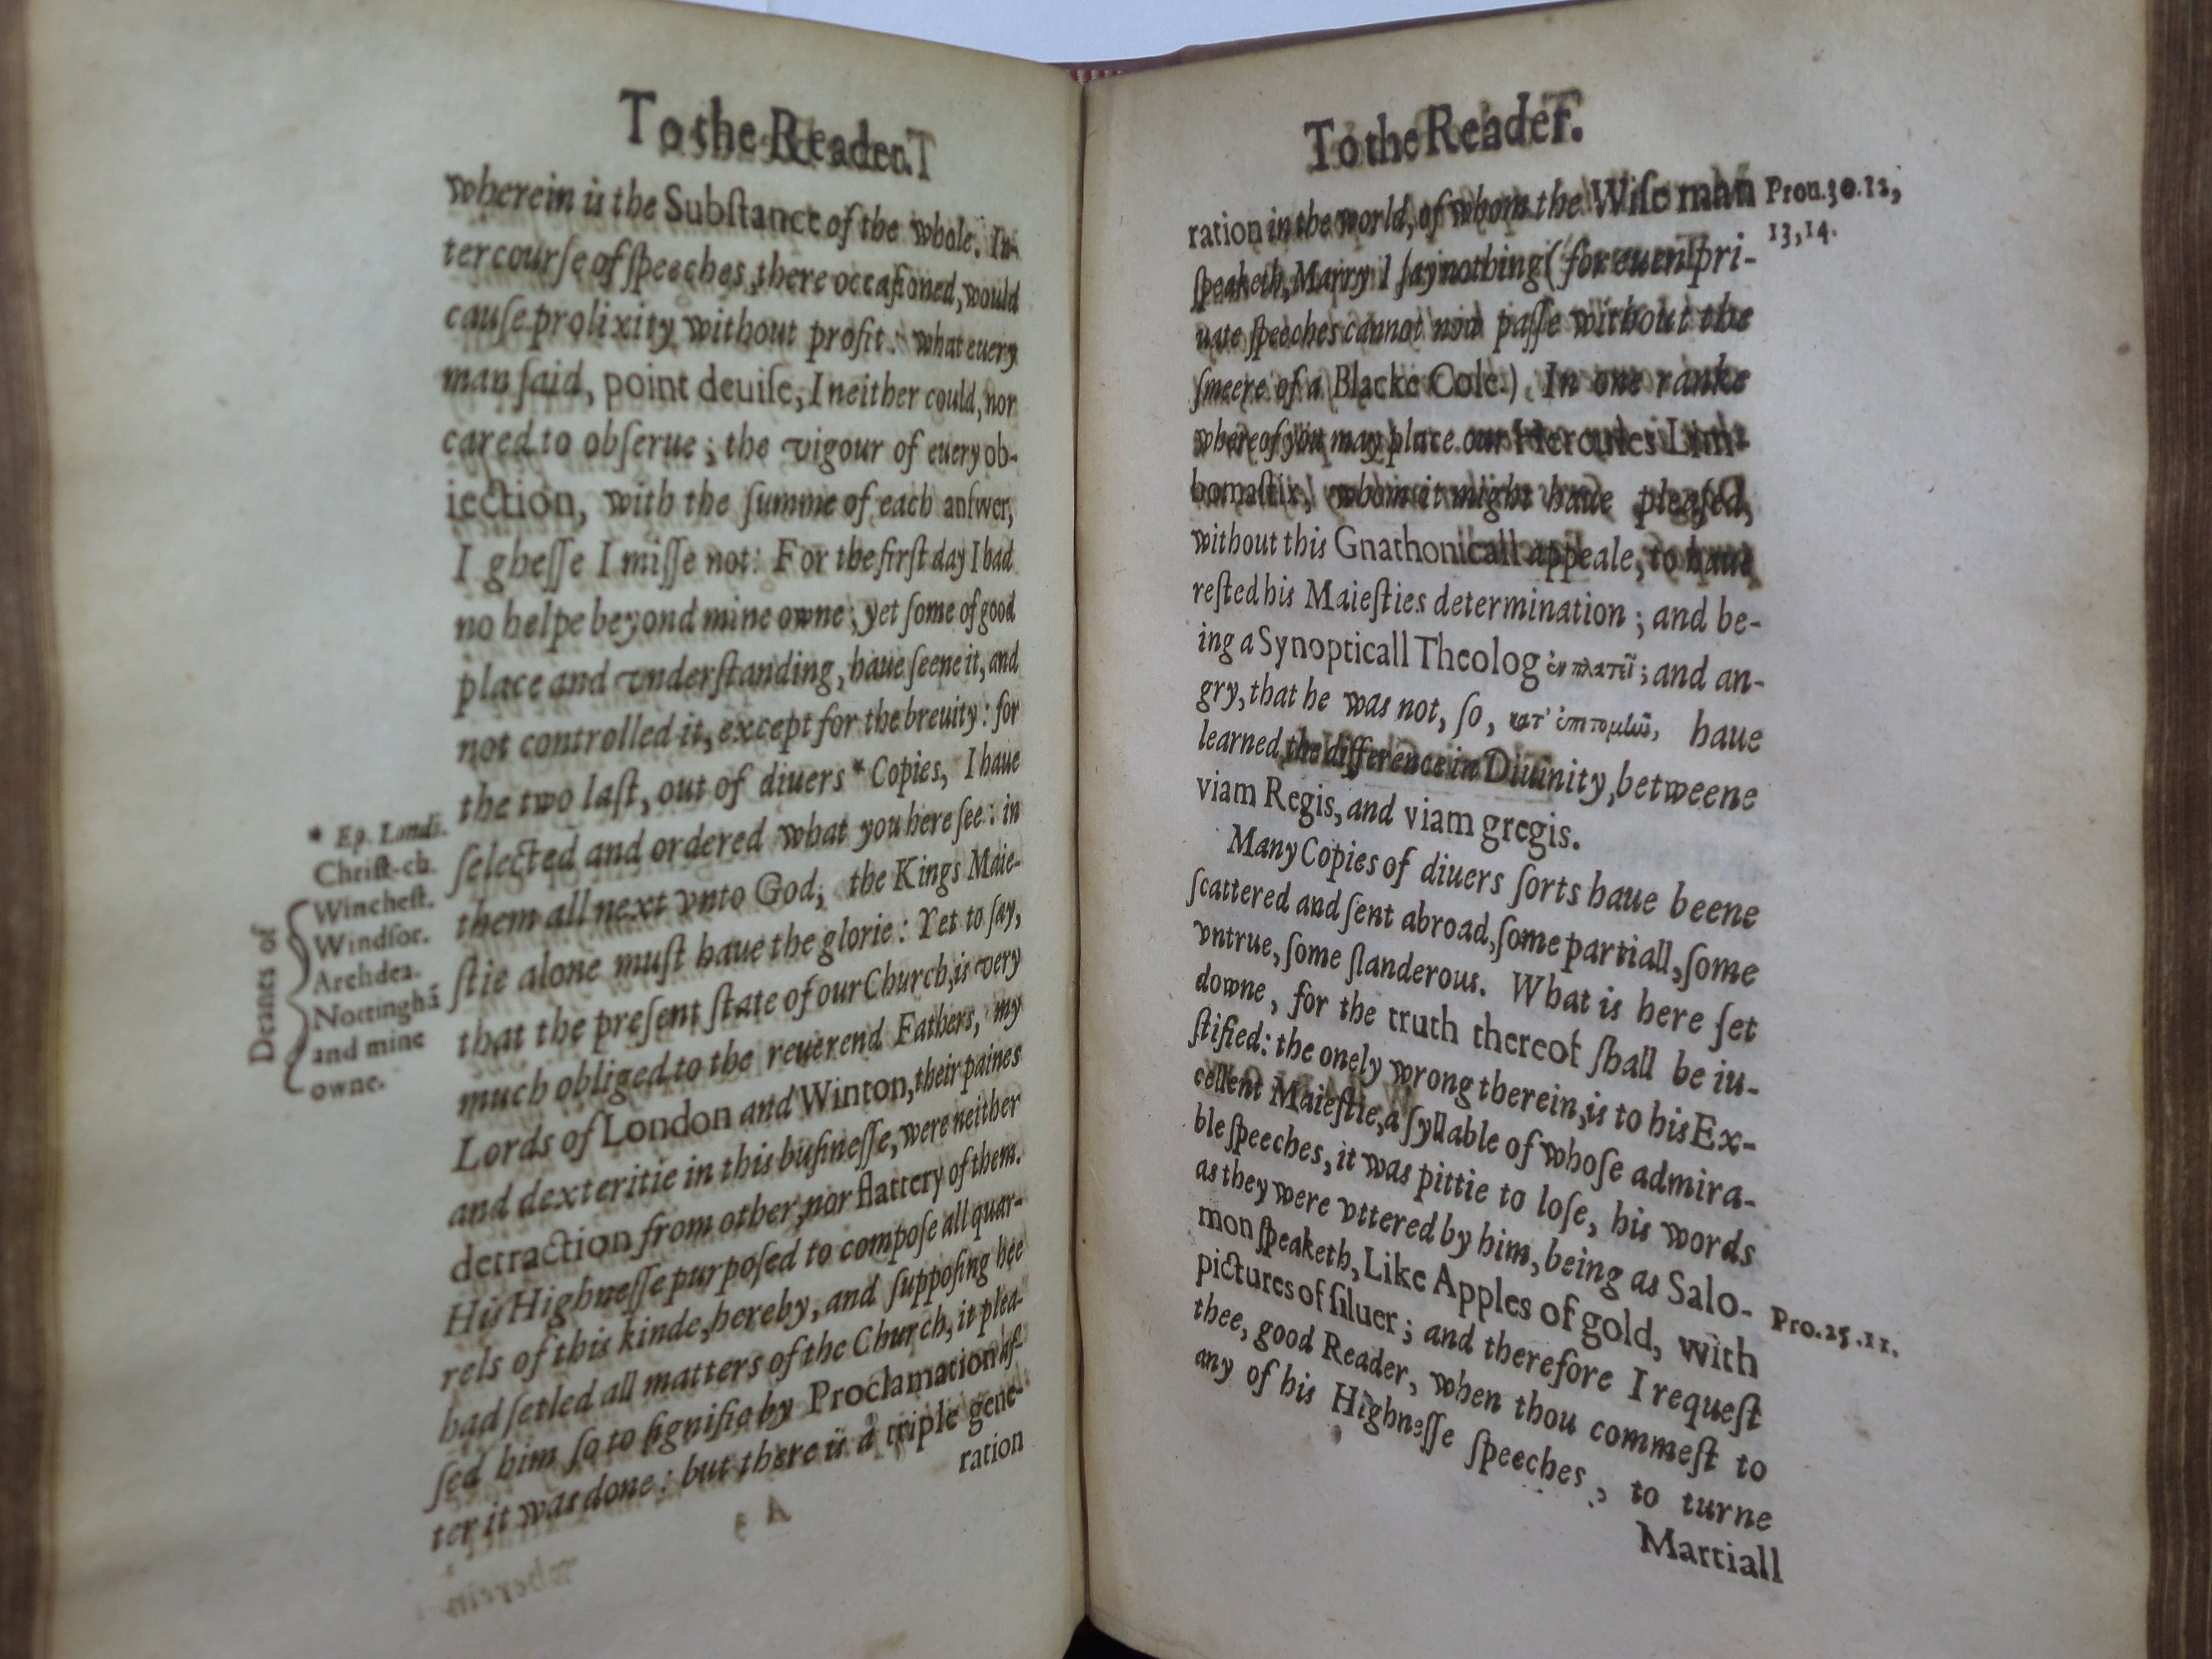 To the Reader.
wherein is the Subſtance of the whole. In-
tercourſe of ſpeeches, there occaſioned, would
cauſe prolixity without profit: what euery
man ſaid, point deuiſe, I neither could, nor
cared to obſerue; the vigour of euery ob-
iection, with the ſumme of each anſwer,
I gheſſe I miſſe not: For the firſt day I had
no helpe beyond mine owne; yet ſome of good
place and vnderſtanding, haue ſeene it, and
not controlled it, except for the breuity: for
the two laſt, out of diuers * Copies, I haue
ſelected and ordered what you here ſee: in
them all next vnto God, the Kings Maie-
ſtie alone muſt haue the glorie: Yet to ſay,
that the preſent ſtate of our Church, is very
much obliged to the reuerend Fathers, my
Lords of London and Winton, their paines
and dexteritie in this buſineſſe, were neither
detraction from other, nor flattery of them.
His Highneſſe purpoſed to compoſe all quar-
rels of this kinde, hereby, and ſuppoſing hee
had ſetled all matters of the Church, it plea-
ſed him ſo to ſignifie by Proclamation af-
ter it was done: but there is a triple gene-
ration
* Ep. Londi.
Deanes of
Chriſt-ch.
Wincheſt.
Windſor.
Archdea.
Nottinghā
and mine
owne.
A 3
wherein
To the Reader.
ration in the world, of whom the Wiſe man
ſpeaketh, Marry I ſay nothing (for euen pri-
uate ſpeeches cannot now paſſe without the
ſmeere of a Blacke Cole.) In one ranke
whereof you may place our Hercules Lim-
bomaſtix, whom it might haue pleaſed,
without this Gnathonicall appeale, to haue
reſted his Maieſties determination; and be-
ing a Synopticall Theolog ἐν πλατεῖ; and an-
gry, that he was not, ſo, κατ' ἐπιτομὴν, haue
learned the difference in Diuinity, betweene
viam Regis, and viam gregis.
Many Copies of diuers ſorts haue beene
ſcattered and ſent abroad, ſome partiall, ſome
vntrue, ſome ſlanderous. What is here ſet
downe, for the truth thereof ſhall be iu-
ſtified: the onely wrong therein, is to his Ex-
cellent Maieſtie, a ſyllable of whoſe admira-
ble ſpeeches, it was pittie to loſe, his words
as they were vttered by him, being as Salo-
mon ſpeaketh, Like Apples of gold, with
pictures of ſiluer; and therefore I requeſt
thee, good Reader, when thou commeſt to
any of his Highneſſe ſpeeches, to turne
Martiall
Prou.30.12,
13,14.
Pro.25.11.